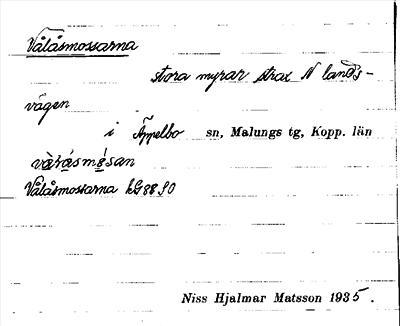 Vålåsmossarna
stora myrar strax N lands-
vägen
i Äppelbo sn, Malungs tg, Kopp. län
Vålåsmossarna
Niss Hjalmar Matsson 1935.